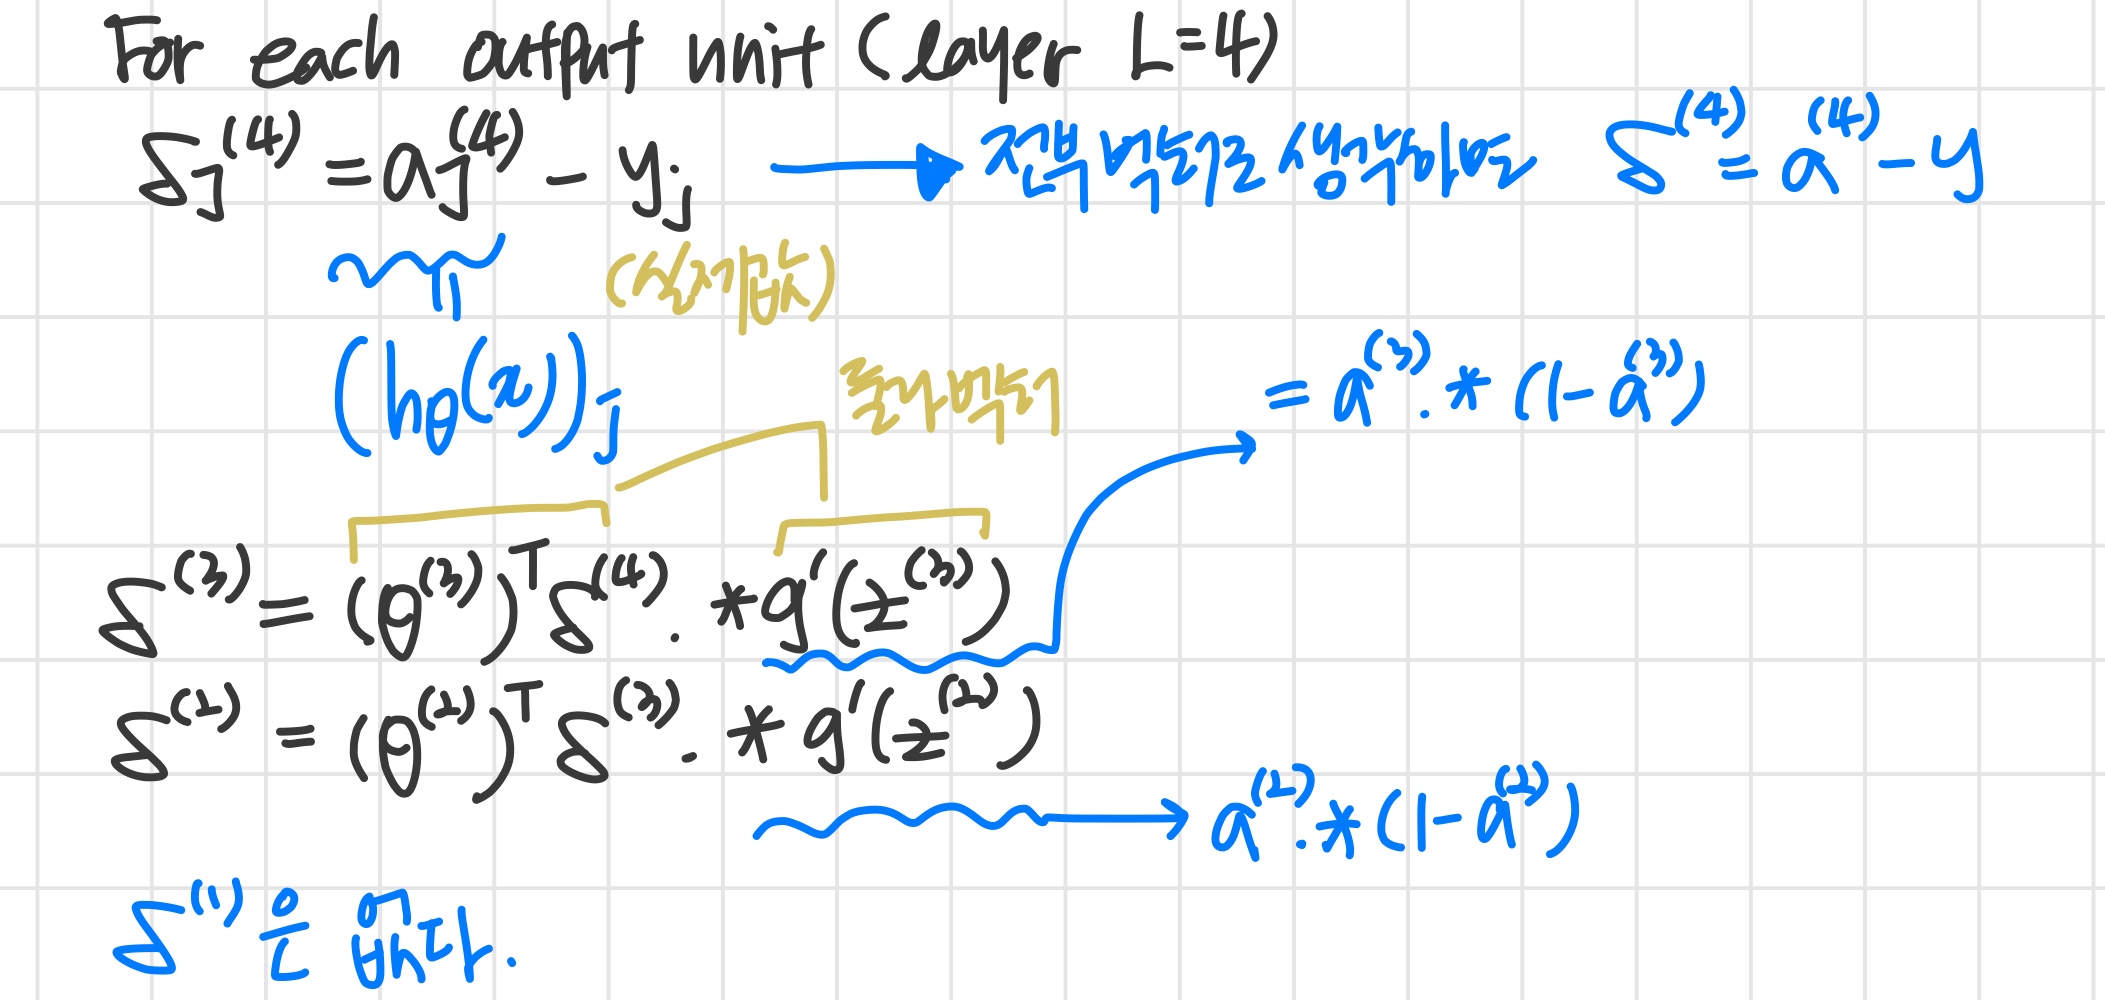 For each output unit (layer L=4)
δj^(4) = aj^(4) - yj → 전부 벡터로 생각하면 δ^(4) = a^(4) - y
(실제값)
(hθ(x))j
둘다 벡터
= a^(3) .* (1 - a^(3))
δ^(3) = (θ^(3))^T δ^(4) .* g'(z^(3))
δ^(2) = (θ^(2))^T δ^(3) .* g'(z^(2))
→ a^(2) .* (1 - a^(2))
δ^(1)은 없다.